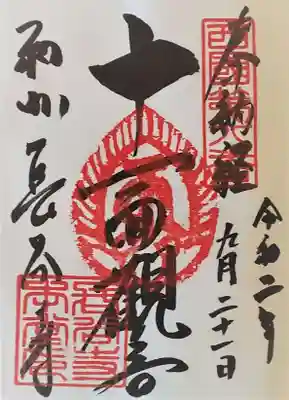 奉納経
令和二年
九月二十一日
十一面觀音
和州 長谷寺